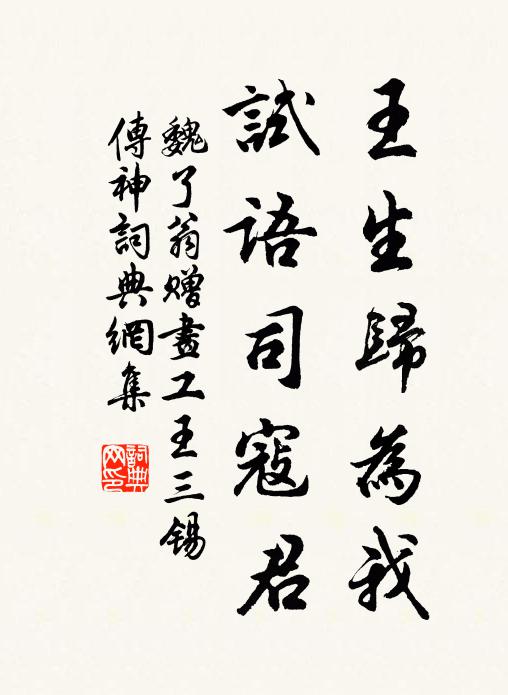 王生歸為我
試語司寇君
魏了翁贈畫工王三錫
傳神詞典網集
詞典网印